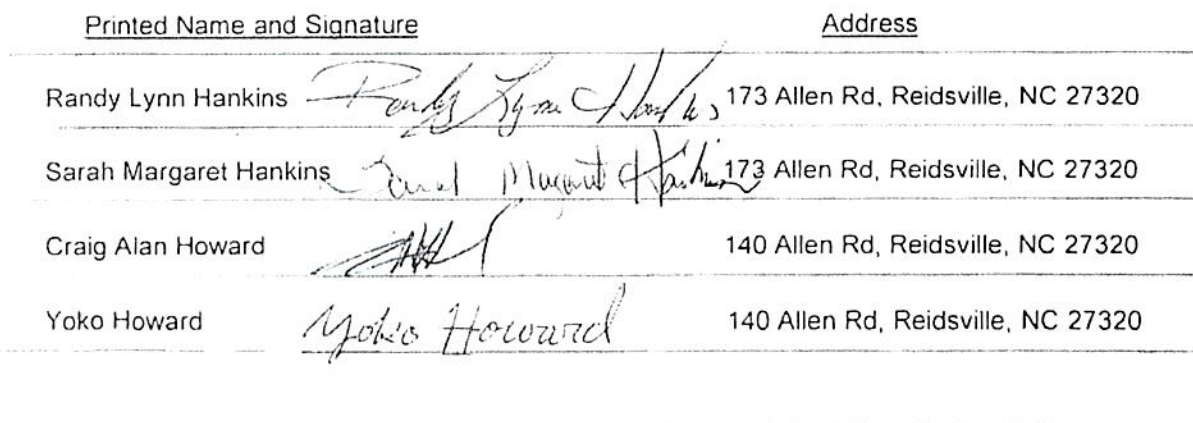 Printed Name and Signature Address
Randy Lynn Hankins Randy Lynn Hankins 173 Allen Rd, Reidsville, NC 27320
Sarah Margaret Hankins Sarah Margaret Hankins 173 Allen Rd, Reidsville, NC 27320
Craig Alan Howard 140 Allen Rd, Reidsville, NC 27320
Yoko Howard Yoko Howard 140 Allen Rd, Reidsville, NC 27320